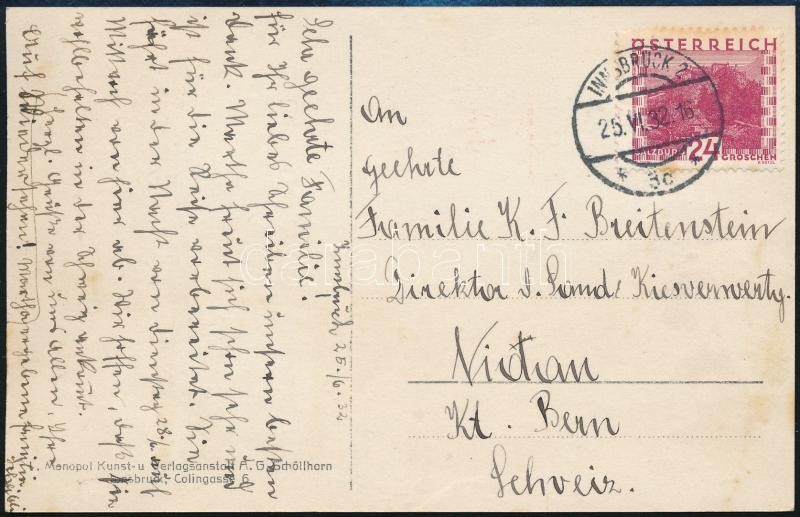 Innsbruck 25./6. 32
Sehr geehrte Familie!
für Ihr liebes Schreiben unseren besten
Dank. Martha freut sich schon sehr und
ist für die Reise vorbereitet. Sie
fährt in der Nacht von Dienstag 28. auf
Mittwoch von hier ab. Wir hoffen, daß sie
wohlbehalten in der Schweiz ankommt.
Auf Wiedersehen!
An
Geehrte
Familie K. F. Breitenstein
Direktor d. Sand/Kiesverwertg.
Nidau
Kt. Bern
Schweiz.
ÖSTERREICH
24
GROSCHEN
INNSBRUCK 2
25.VI.32.16
* 3c *
Monopol Kunst- u. Verlagsanstalt A. G. Schöllhorn
Innsbruck, Colingasse 6
darabanth